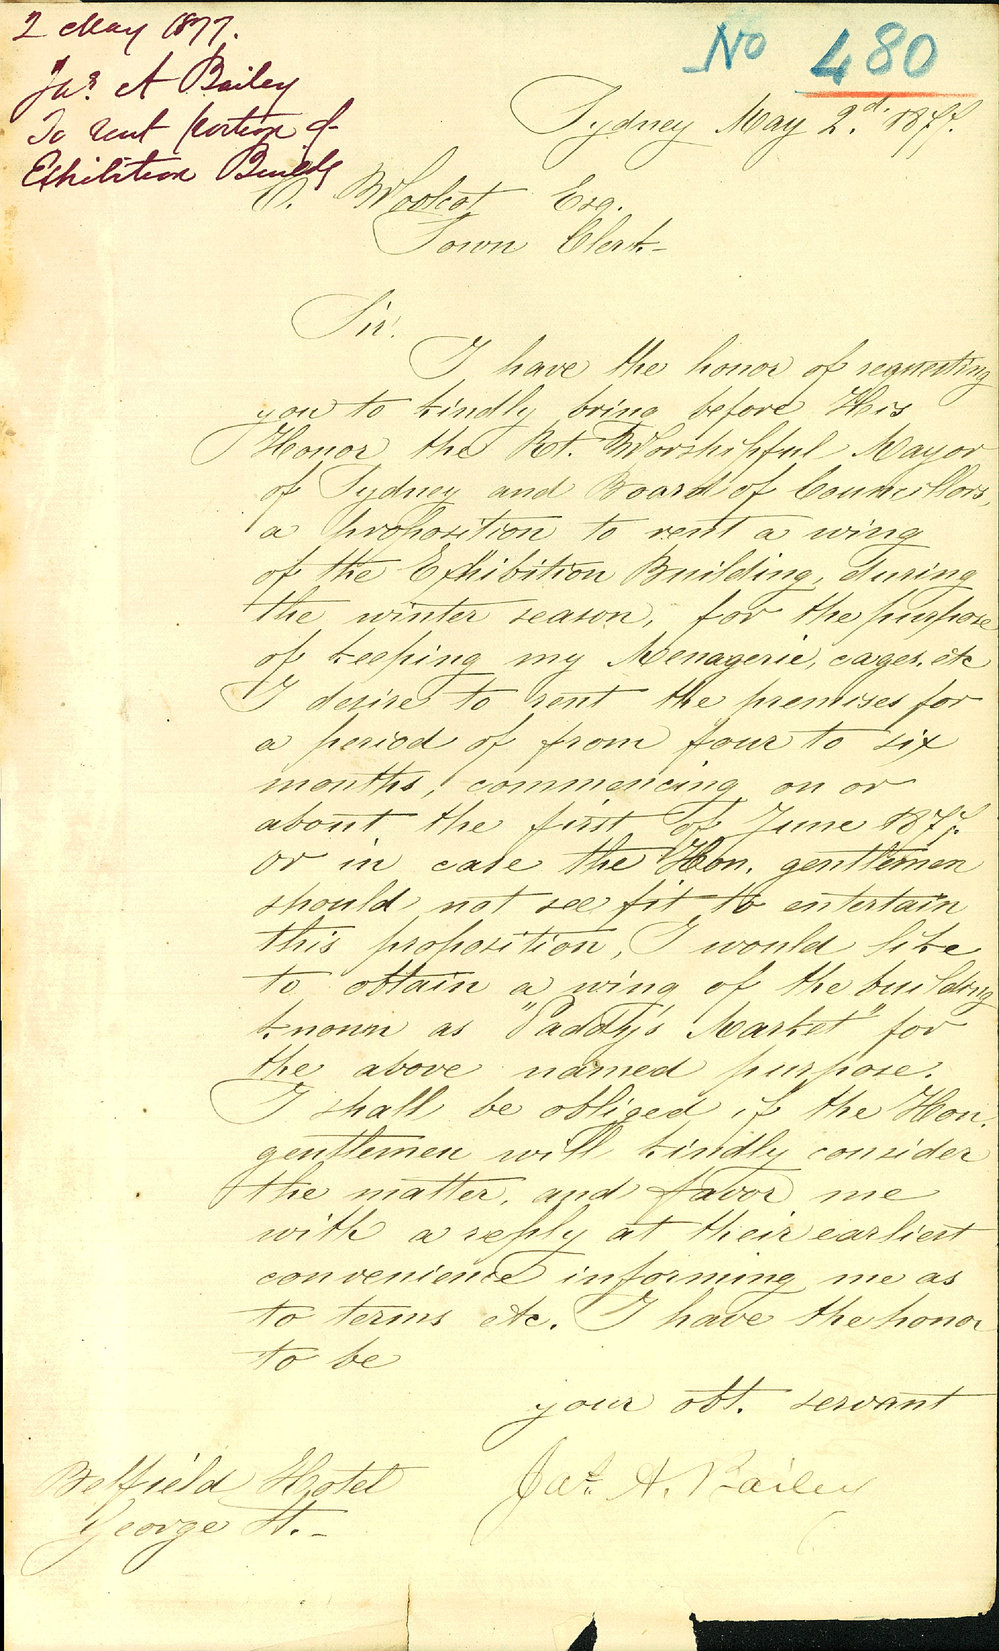 2 May 1877.
Jas. A Bailey
To rent portion of
Exhibition Buildg
No 480
Sydney May 2nd. 1877.
C. Woolcot Esq.
Town Clerk
Sir.
I have the honor of requesting
you to kindly bring before His
Honor the Rt. Worshipful Mayor
of Sydney and Board of Councillors,
a proposition to rent a wing
of the Exhibition Building, during
the winter season, for the purpose
of keeping my Menagerie, cages, etc
I desire to rent the premises for
a period of from four to six
months, commencing on or
about the first of June 1877;
or in case the Hon. gentlemen
should not see fit to entertain
this proposition, I would like
to obtain a wing of the building
known as "Paddy's Market" for
the above named purpose.
I shall be obliged if the Hon.
gentlemen will kindly consider
the matter, and favor me
with a reply at their earliest
convenience informing me as
to terms etc. I have the honor
to be
your obt. servant
Jas. A. Bailey
Belfield Hotel
George St.